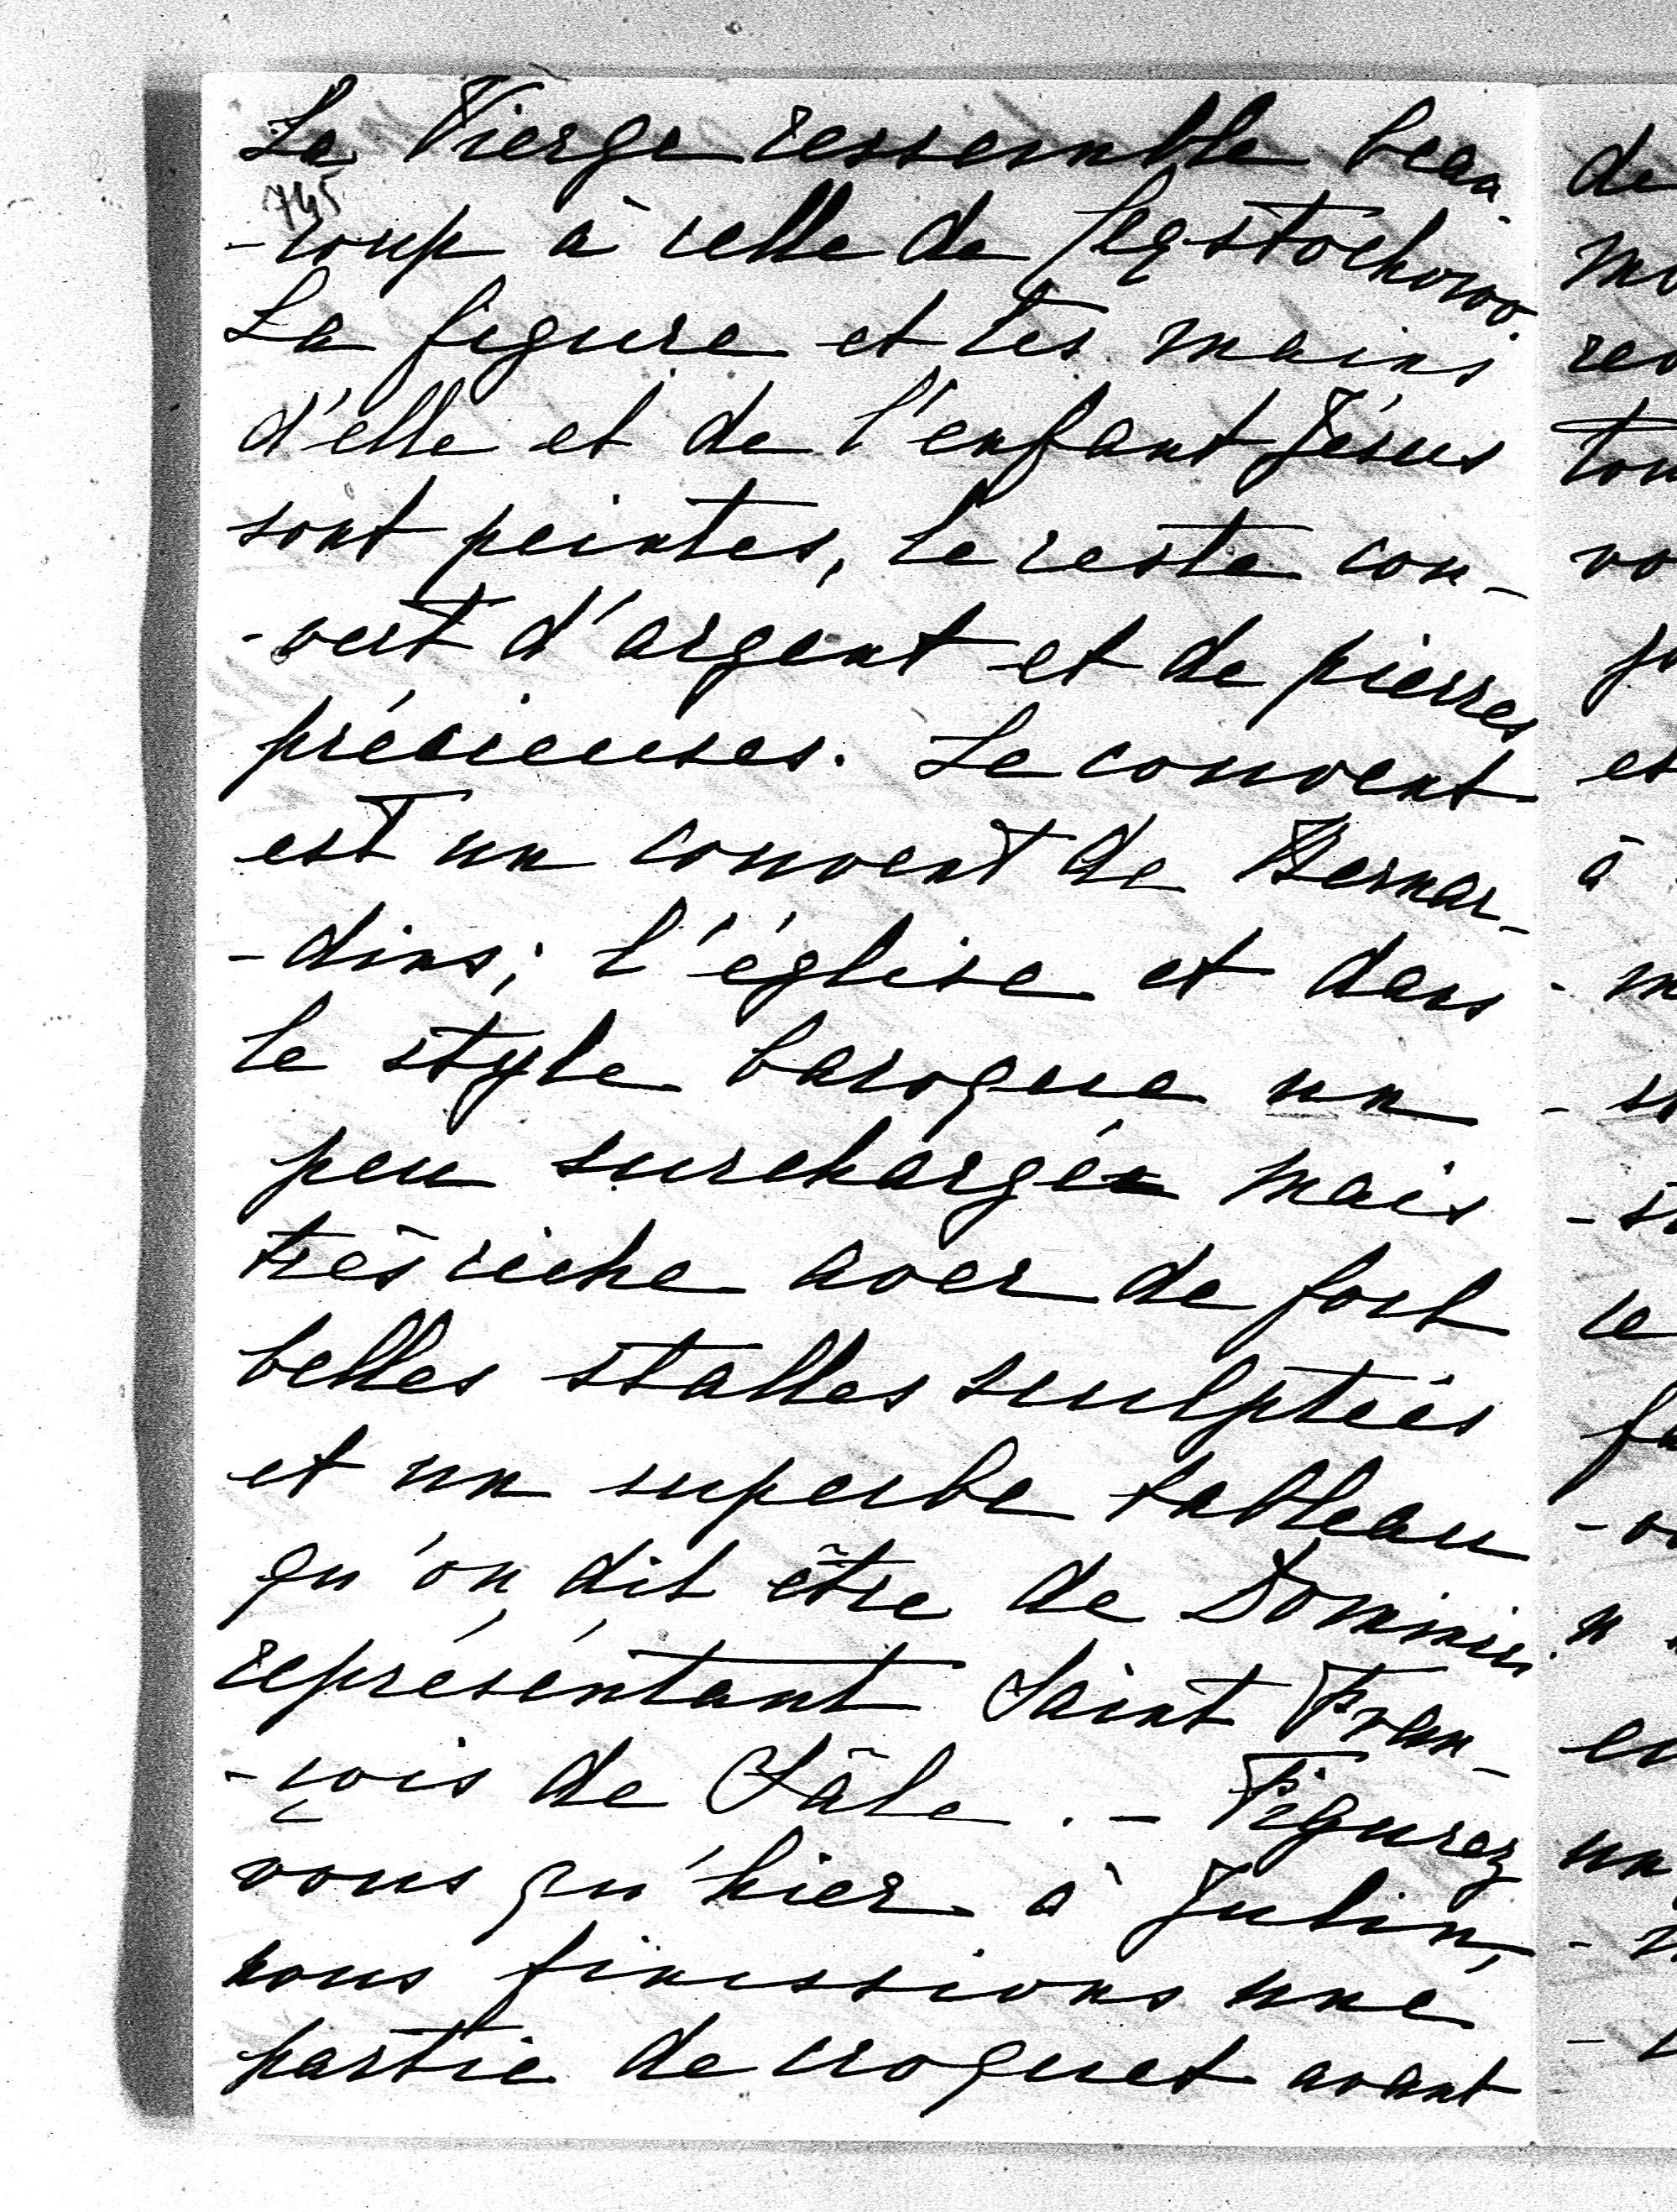 La Vierge ressemble beau-
745
-coup à celle de Częstochowo.
La figure et les mains
d'elle et de l'enfant Jésus
sont peintes, le reste cou-
-vert d'argent et de pierres
précieuses. Le couvent
est un couvent de Bernar-
-dins; l'église et dans
le style baroque un
peu surchargée mais
très riche avec de fort
belles stalles sculptées
et un superbe tableau
qu'on dit être de
représentant Saint Fran-
-çois de Sâle. - Figurez
vous qu'hier à Julin,
nous finissions une
partie de croquet avant